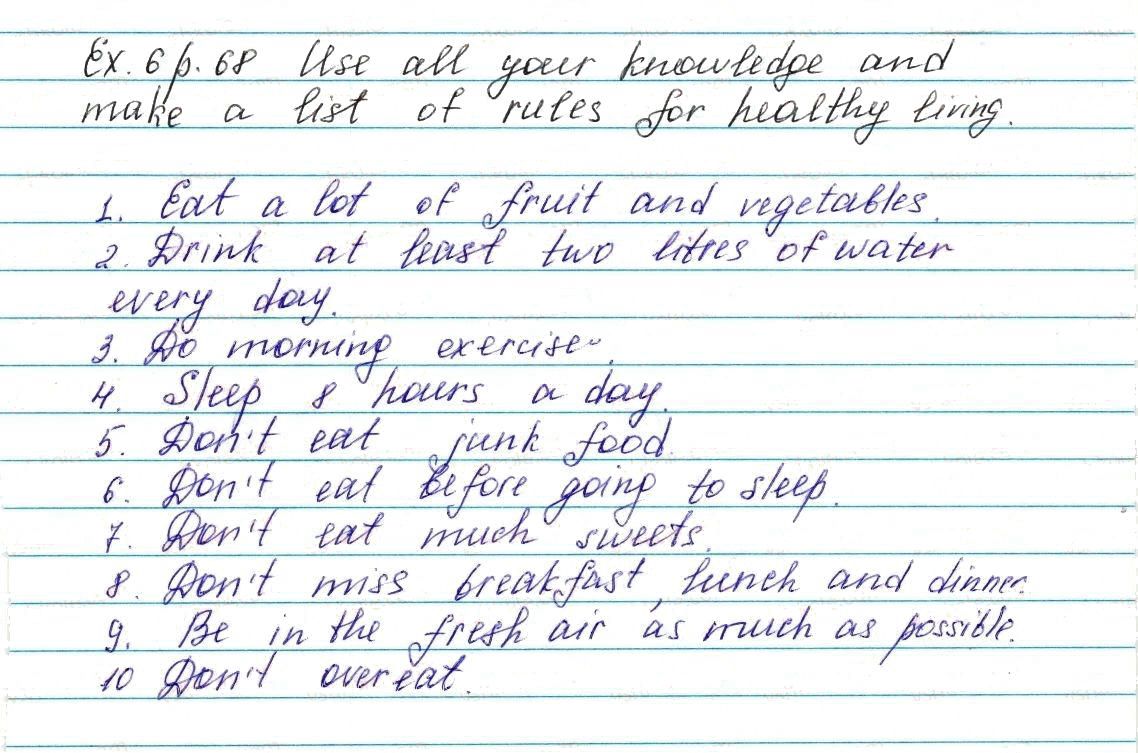 Ex. 6 p. 68 Use all your knowledge and
make a list of rules for healthy living.
1. Eat a lot of fruit and vegetables.
2. Drink at least two litres of water
every day.
3. Do morning exercise.
4. Sleep 8 hours a day.
5. Don't eat junk food.
6. Don't eat before going to sleep.
7. Don't eat much sweets.
8. Don't miss breakfast, lunch and dinner.
9. Be in the fresh air as much as possible.
10 Don't overeat.